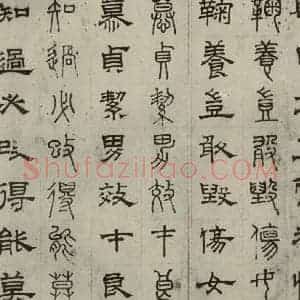 鞠養豈敢毀傷女
鞠養豈敢毀傷女
慕貞絜男效才良
慕貞絜男效才良
知過必改得能莫
知過必改得能莫
Shufaziliao.com